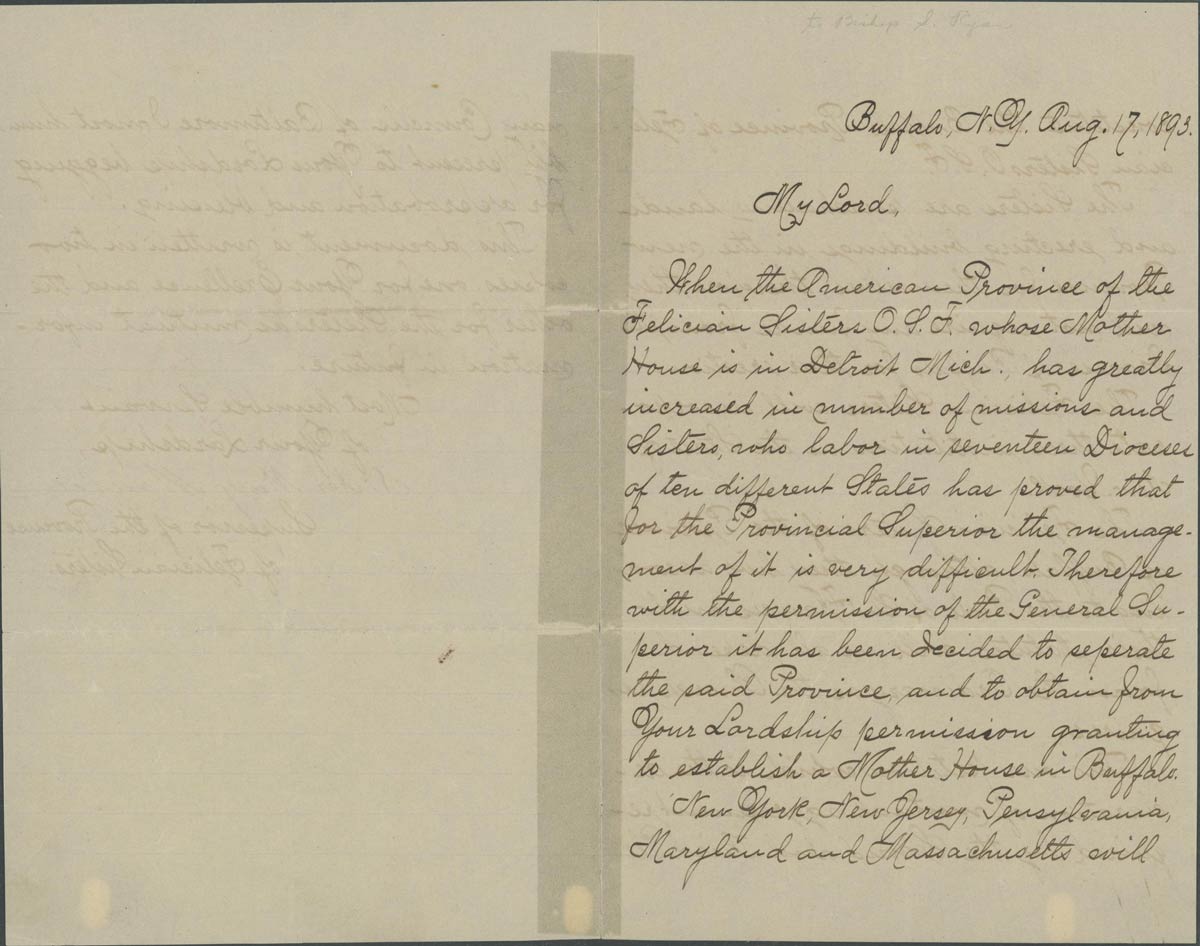 to Bishop S. Ryan
Buffalo, N.Y. Aug. 17, 1893.
My Lord,
When the American Province of the
Felician Sisters O.S.F. whose Mother
House is in Detroit Mich., has greatly
increased in number of missions and
Sisters, who labor in seventeen Dioceses
of ten different States has proved that
for the Provincial Superior the manage-
ment of it is very difficult. Therefore
with the permission of the General Su-
perior it has been decided to seperate
the said Province, and to obtain from
Your Lordship permission granting
to establish a Mother House in Buffalo.
New York, New Jersey, Pensylvania,
Maryland and Massachusetts will